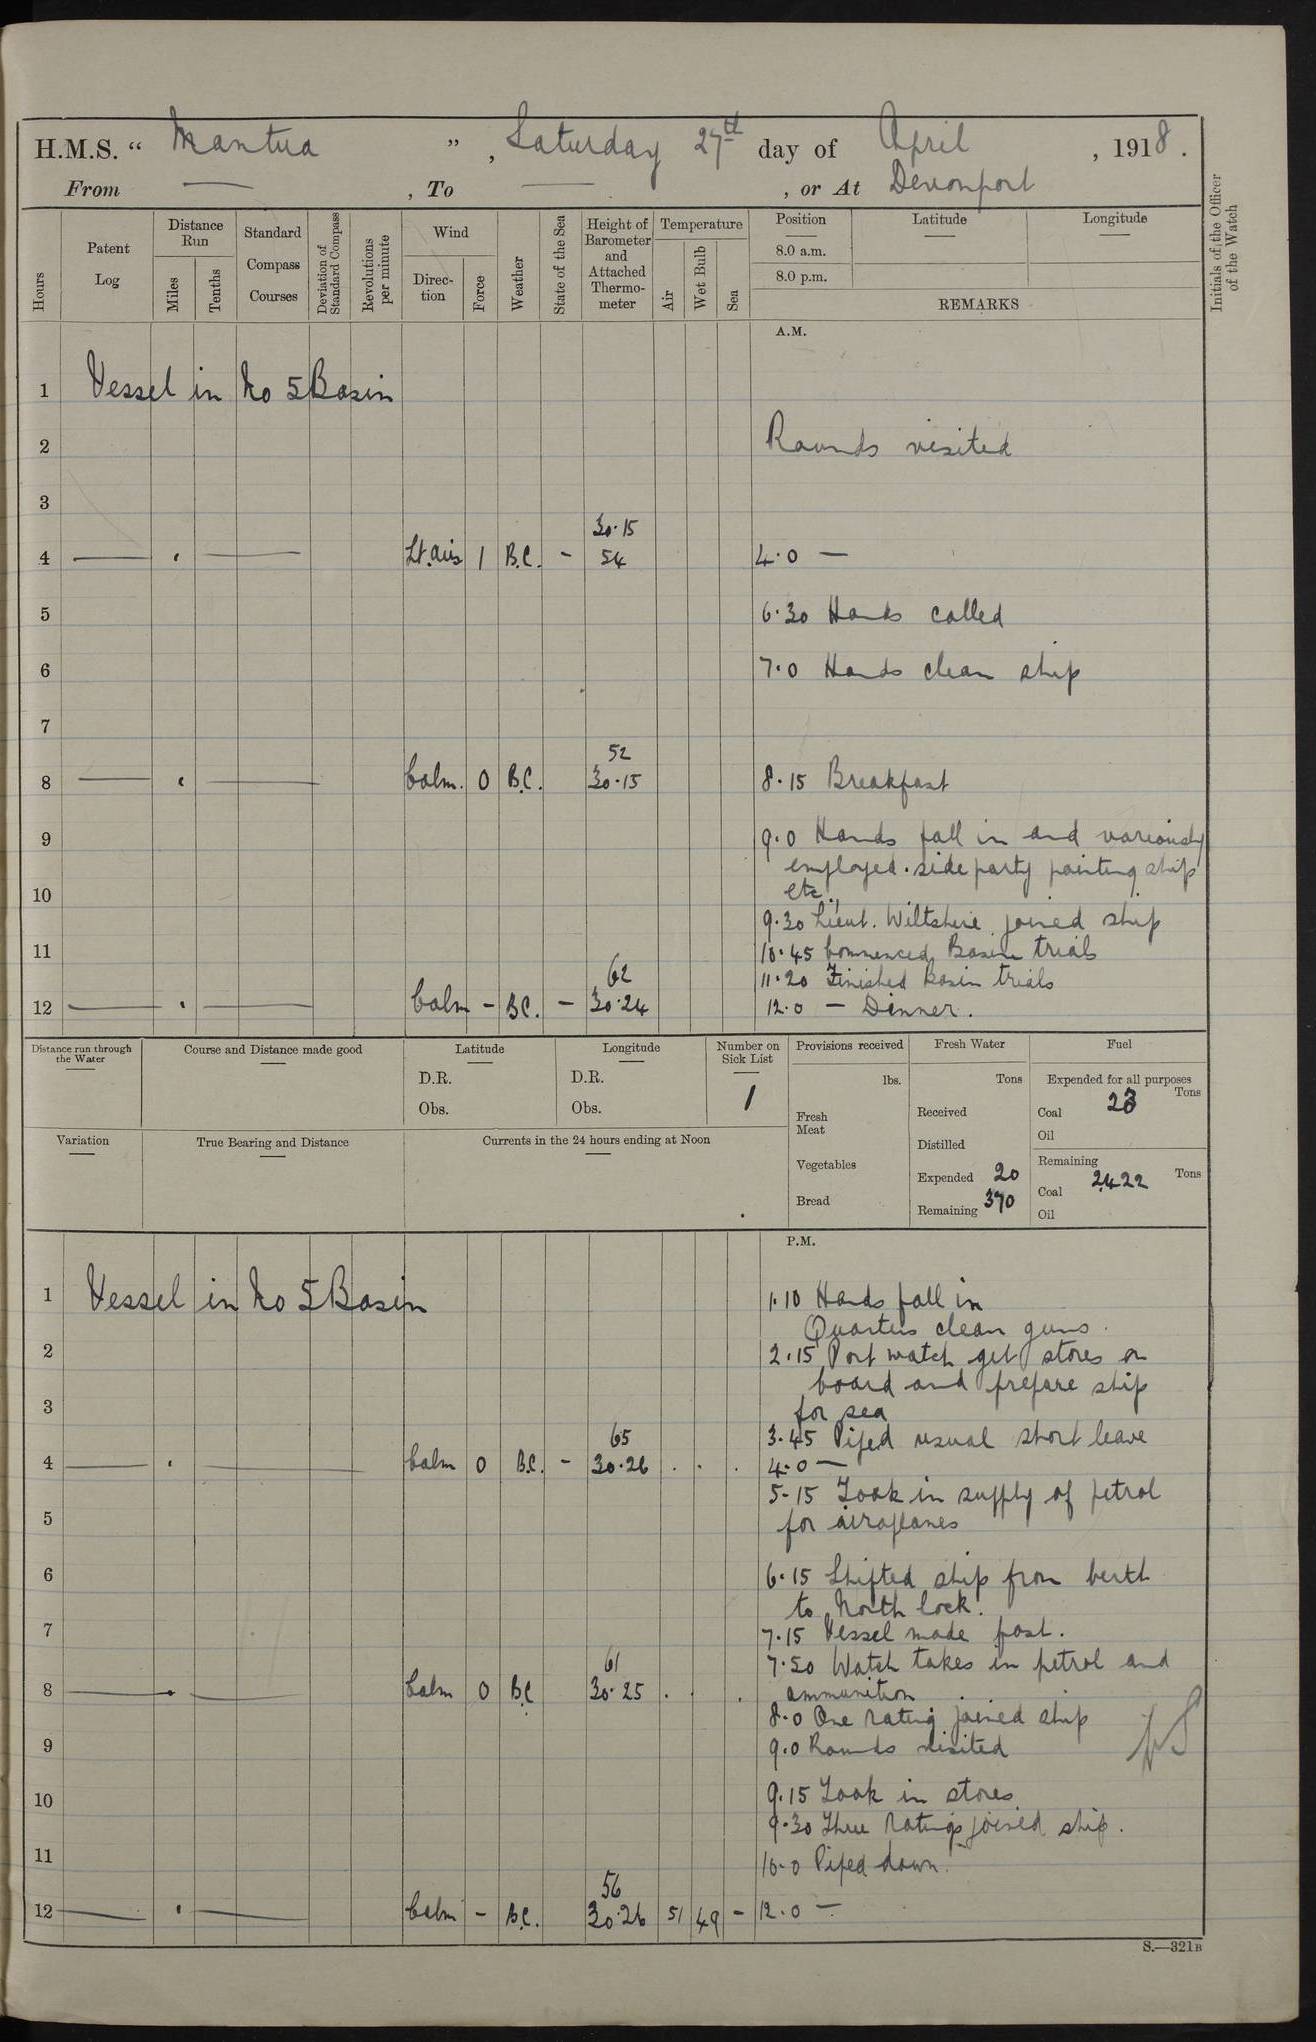 H.M.S. “ Mantua ” , Saturday 27th day of April , 1918 .
From — , To — , or At Devonport
Hours
Patent Log
Distance Run
Miles
Tenths
Standard Compass Courses
Deviation of Standard Compass
Revolutions per minute
Wind
Direc-tion
Force
Weather
State of the Sea
Height of Barometer and Attached Thermo-meter
Temperature
Air
Wet Bulb
Sea
Position
Latitude
Longitude
8.0 a.m.
8.0 p.m.
REMARKS
Initials of the Officer of the Watch
A.M.
1 Vessel in No 5 Basin
2 Rounds visited
3
30.15
4 Lt. airs 1 B.C. - 54 4.0 —
5 6.30 Hands called
6 7.0 Hands clean ship
7
52
8 Calm. 0 B.C. 30.15 8.15 Breakfast
9 9.0 Hands fall in and variously
employed. side party painting ship
10 etc.,
9.30 Lieut. Wiltshire joined ship
11 10.45 Commenced Basin trials
62 11.20 Finished basin trials
12 Calm - B.C. - 30.24 12.0 — Dinner.
Distance run through the Water
Course and Distance made good
Latitude
D.R.
Obs.
Longitude
D.R.
Obs.
Number on Sick List
1
Provisions received
lbs.
Fresh Meat
Vegetables
Bread
Fresh Water
Tons
Received
Distilled
Expended 20
Remaining 370
Fuel
Expended for all purposes
Tons
Coal 23
Oil
Remaining
Tons
Coal 2422
Oil
Variation
True Bearing and Distance
Currents in the 24 hours ending at Noon
P.M.
1 Vessel in No 5 Basin 1.10 Hands fall in
Quarters clean guns.
2 2.15 Port watch get stores on
board and prepare ship
3 for sea
65 3.45 Piped usual short leave
4 Calm 0 B.C. - 30.26 4.0 —
5.15 Took in supply of petrol
5 for airoplanes
6 6.15 Shifted ship from berth
to North lock.
7 7.15 Vessel made fast.
61 7.50 Watch takes in petrol and
8 Calm 0 B.C 30.25 ammunition
8.0 One rating joined ship
9 9.0 Rounds visited
10 9.15 Took in stores
9.30 Three ratings joined ship.
11 10.0 Piped down.
56
12 Calm - B.C. 30.26 51 49 - 12.0 —
S.—321B